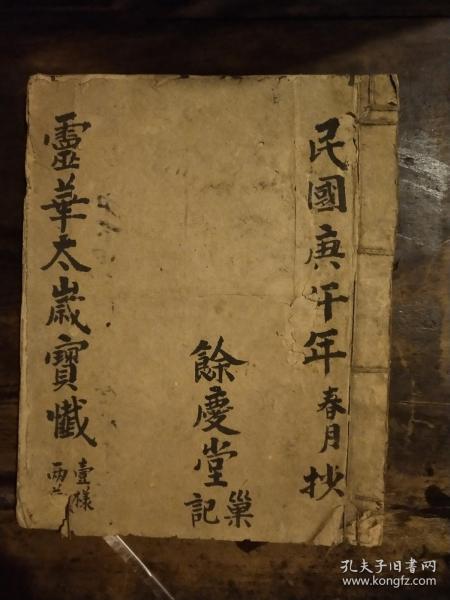 民國庚午年春月抄
餘慶堂
巢記
靈華太歲寳懺
壹樣
兩
孔夫子旧书网
www.kongfz.com